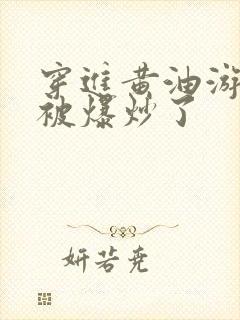 穿进黄油游
被爆炒了
妍若尧